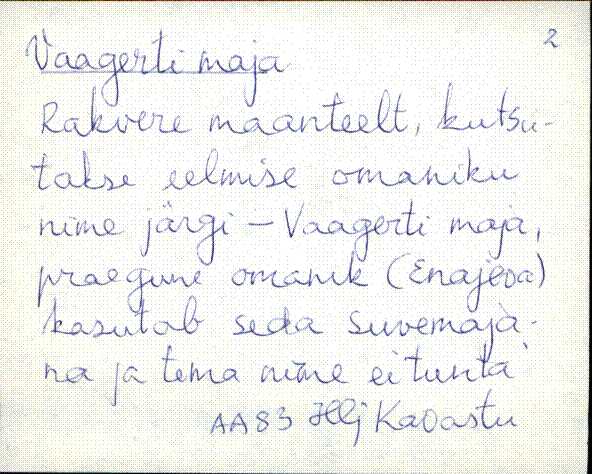 2
Vaagerti maja
Rakvere maanteelt, kutsu-
takse eelmise omaniku
nime järgi – Vaagerti maja,
praegune omanik (Enajeva)
kasutab seda suvemaja-
na ja tema nime ei tunta
AA83 Hlj Kavastu